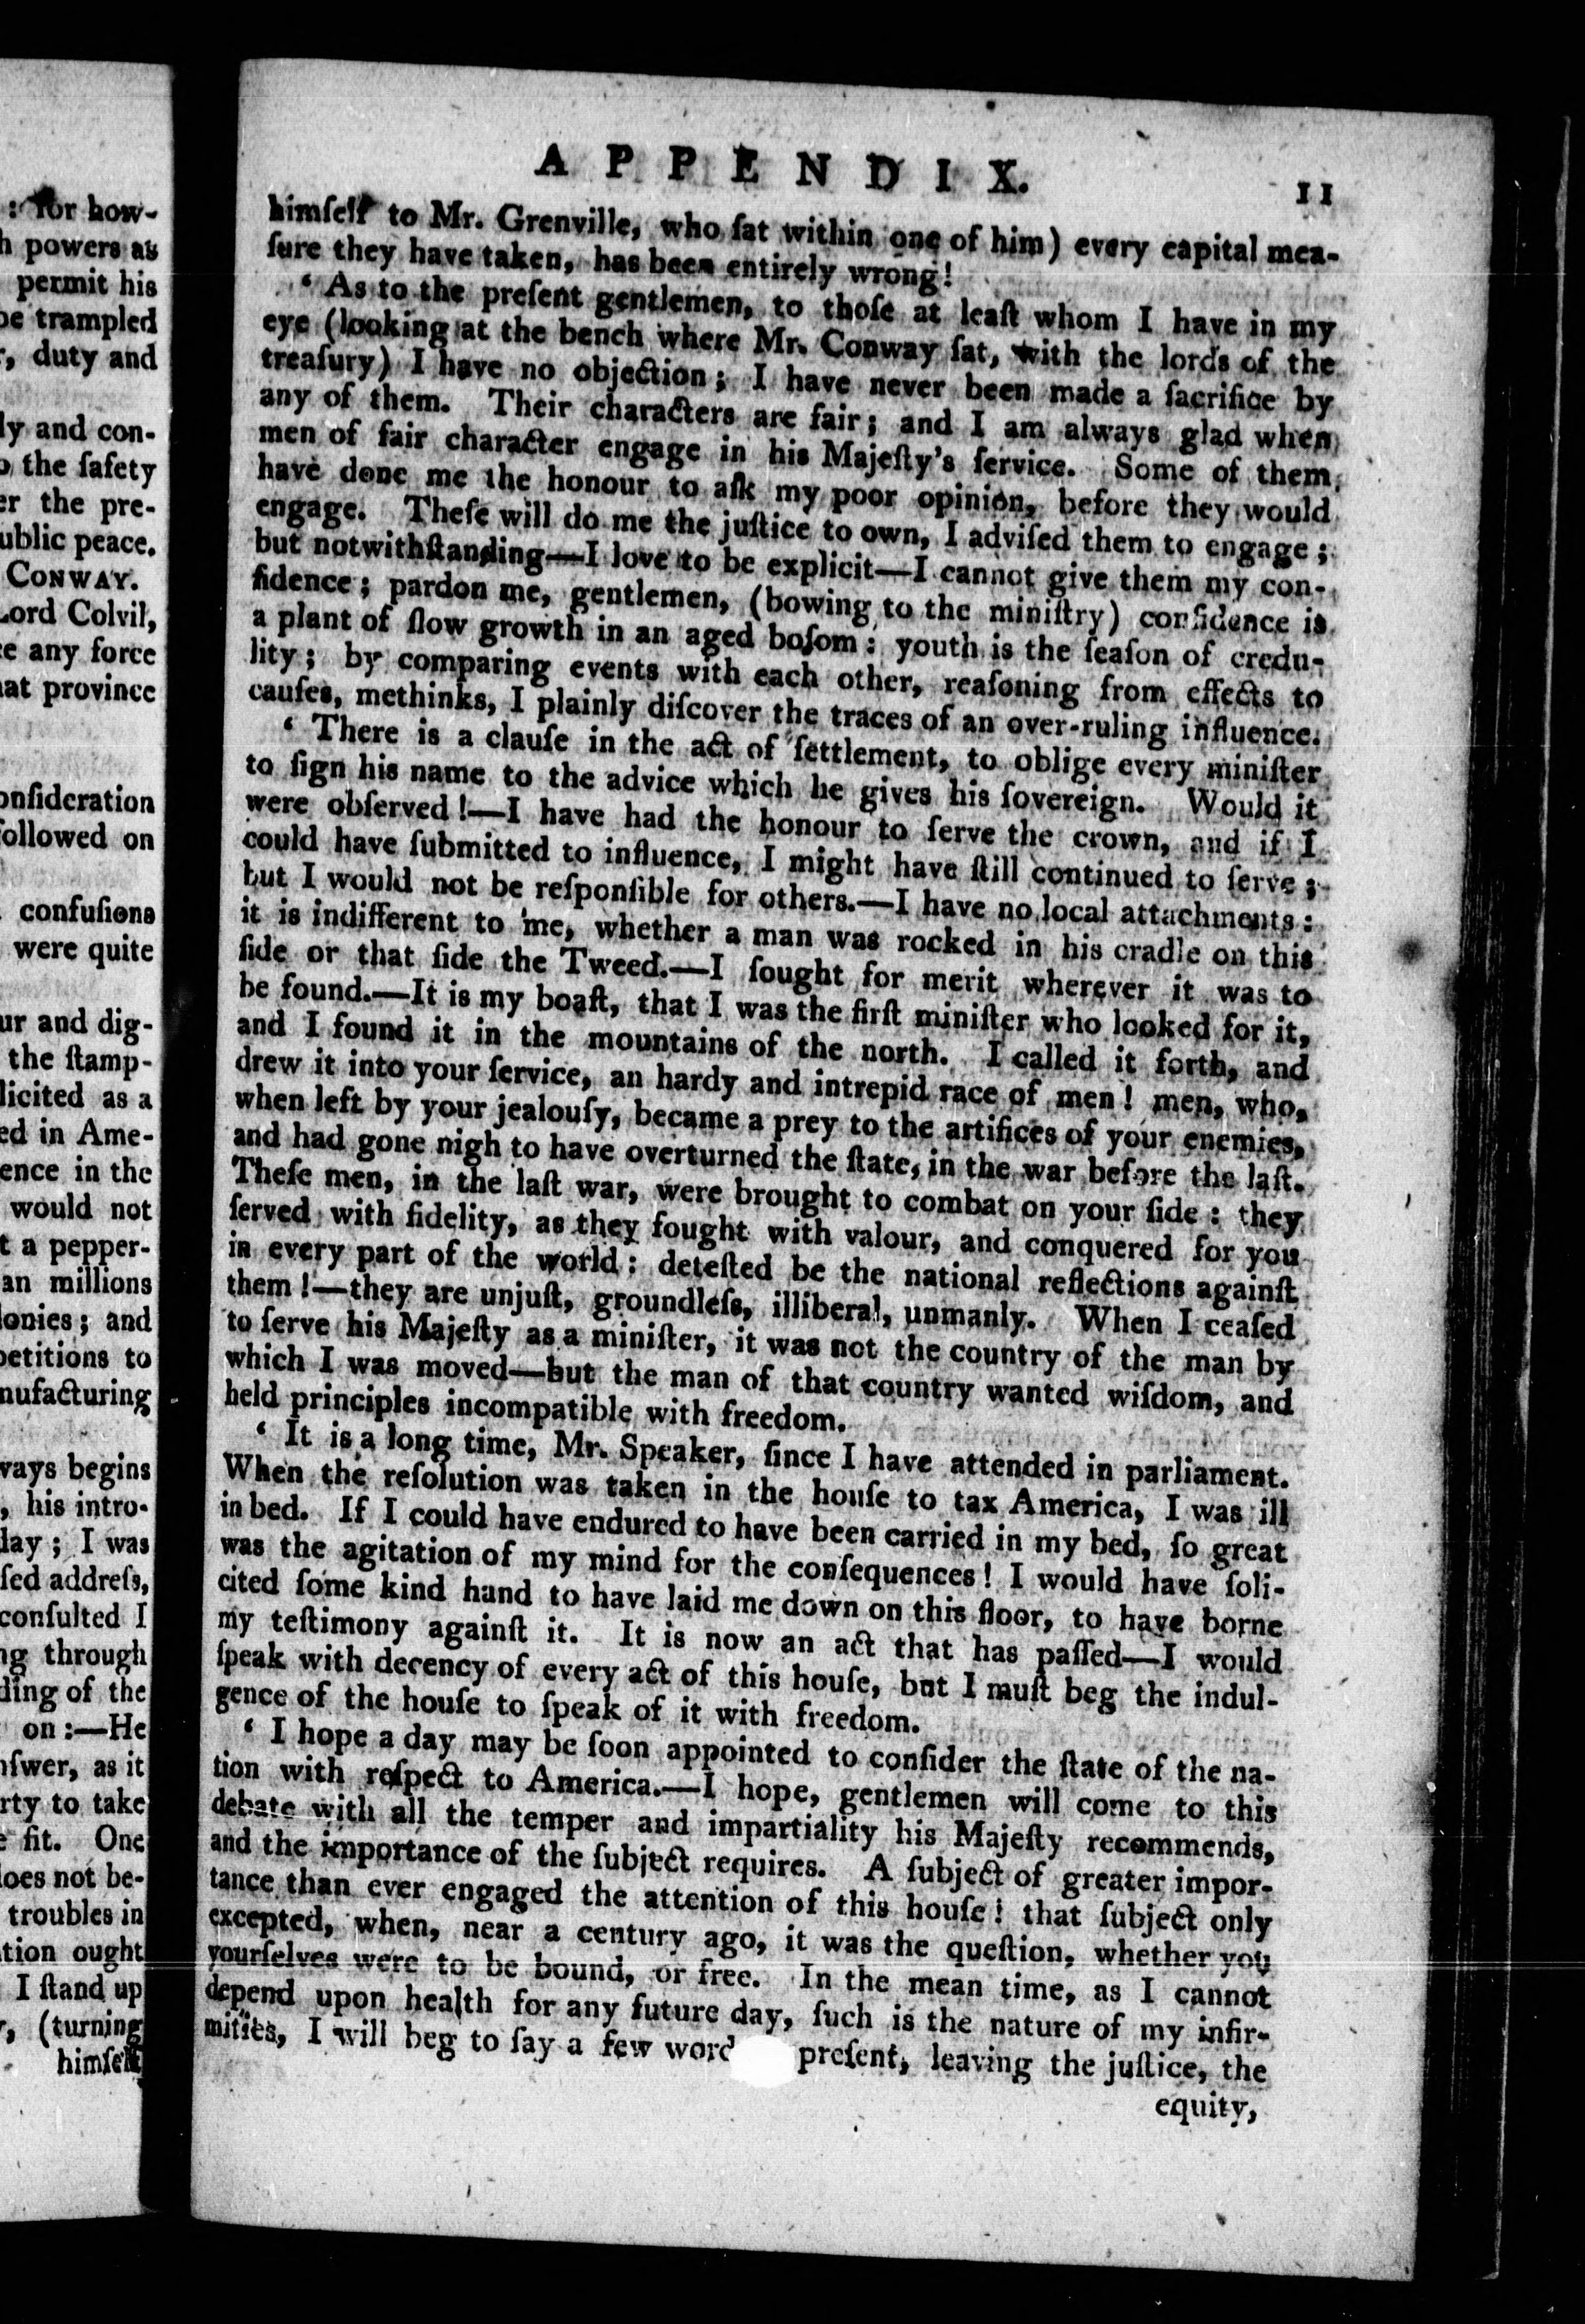 : for how-
h powers as
permit his
be trampled
, duty and
ly and con-
o the ſafety
er the pre-
ublic peace.
CONWAY.
Lord Colvil,
ce any force
hat province
onſideration
followed on
confuſions
were quite
ur and dig-
the ſtamp-
licited as a
ed in Ame-
ence in the
would not
t a pepper-
an millions
lonies; and
petitions to
nufacturing
ways begins
, his intro-
day; I was
ſed addreſs,
conſulted I
ng through
ding of the
on:—He
nſwer, as it
rty to take
e fit. One
does not be-
troubles in
tion ought
I ſtand up
, (turning
himſelf
APPENDIX. 11
himſelf to Mr. Grenville, who ſat within one of him) every capital mea-
ſure they have taken, has been entirely wrong!
‘ As to the preſent gentlemen, to thoſe at leaſt whom I have in my
eye (looking at the bench where Mr. Conway ſat, with the lords of the
treaſury) I have no objection; I have never been made a ſacrifice by
any of them. Their characters are fair; and I am always glad when
men of fair character engage in his Majeſty's ſervice. Some of them
have done me the honour to aſk my poor opinion, before they would
engage. Theſe will do me the juſtice to own, I adviſed them to engage;
but notwithſtanding—I love to be explicit—I cannot give them my con-
fidence; pardon me, gentlemen, (bowing to the miniſtry) confidence is
a plant of ſlow growth in an aged boſom: youth is the ſeaſon of credu-
lity; by comparing events with each other, reaſoning from effects to
cauſes, methinks, I plainly diſcover the traces of an over-ruling influence.
‘ There is a clauſe in the act of ſettlement, to oblige every miniſter
to ſign his name to the advice which he gives his ſovereign. Would it
were obſerved!—I have had the honour to ſerve the crown, and if I
could have ſubmitted to influence, I might have ſtill continued to ſerve;
but I would not be reſponſible for others.—I have no local attachments:
it is indifferent to me, whether a man was rocked in his cradle on this
ſide or that ſide the Tweed.—I ſought for merit wherever it was to
be found.—It is my boaſt, that I was the firſt miniſter who looked for it,
and I found it in the mountains of the north. I called it forth, and
drew it into your ſervice, an hardy and intrepid race of men! men, who,
when left by your jealouſy, became a prey to the artifices of your enemies,
and had gone nigh to have overturned the ſtate, in the war before the laſt.
Theſe men, in the laſt war, were brought to combat on your ſide: they
ſerved with fidelity, as they fought with valour, and conquered for you
in every part of the world: deteſted be the national reflections againſt
them!—they are unjuſt, groundleſs, illiberal, unmanly. When I ceaſed
to ſerve his Majeſty as a miniſter, it was not the country of the man by
which I was moved—but the man of that country wanted wiſdom, and
held principles incompatible with freedom.
‘ It is a long time, Mr. Speaker, ſince I have attended in parliament.
When the reſolution was taken in the houſe to tax America, I was ill
in bed. If I could have endured to have been carried in my bed, ſo great
was the agitation of my mind for the conſequences! I would have ſoli-
cited ſome kind hand to have laid me down on this floor, to have borne
my teſtimony againſt it. It is now an act that has paſſed—I would
ſpeak with decency of every act of this houſe, but I muſt beg the indul-
gence of the houſe to ſpeak of it with freedom.
‘ I hope a day may be ſoon appointed to conſider the ſtate of the na-
tion with reſpect to America.—I hope, gentlemen will come to this
debate with all the temper and impartiality his Majeſty recommends,
and the importance of the ſubject requires. A ſubject of greater impor-
tance than ever engaged the attention of this houſe! that ſubject only
excepted, when, near a century ago, it was the queſtion, whether you
yourſelves were to be bound, or free. In the mean time, as I cannot
depend upon health for any future day, ſuch is the nature of my infir-
mities, I will beg to ſay a few word preſent, leaving the juſtice, the
equity,